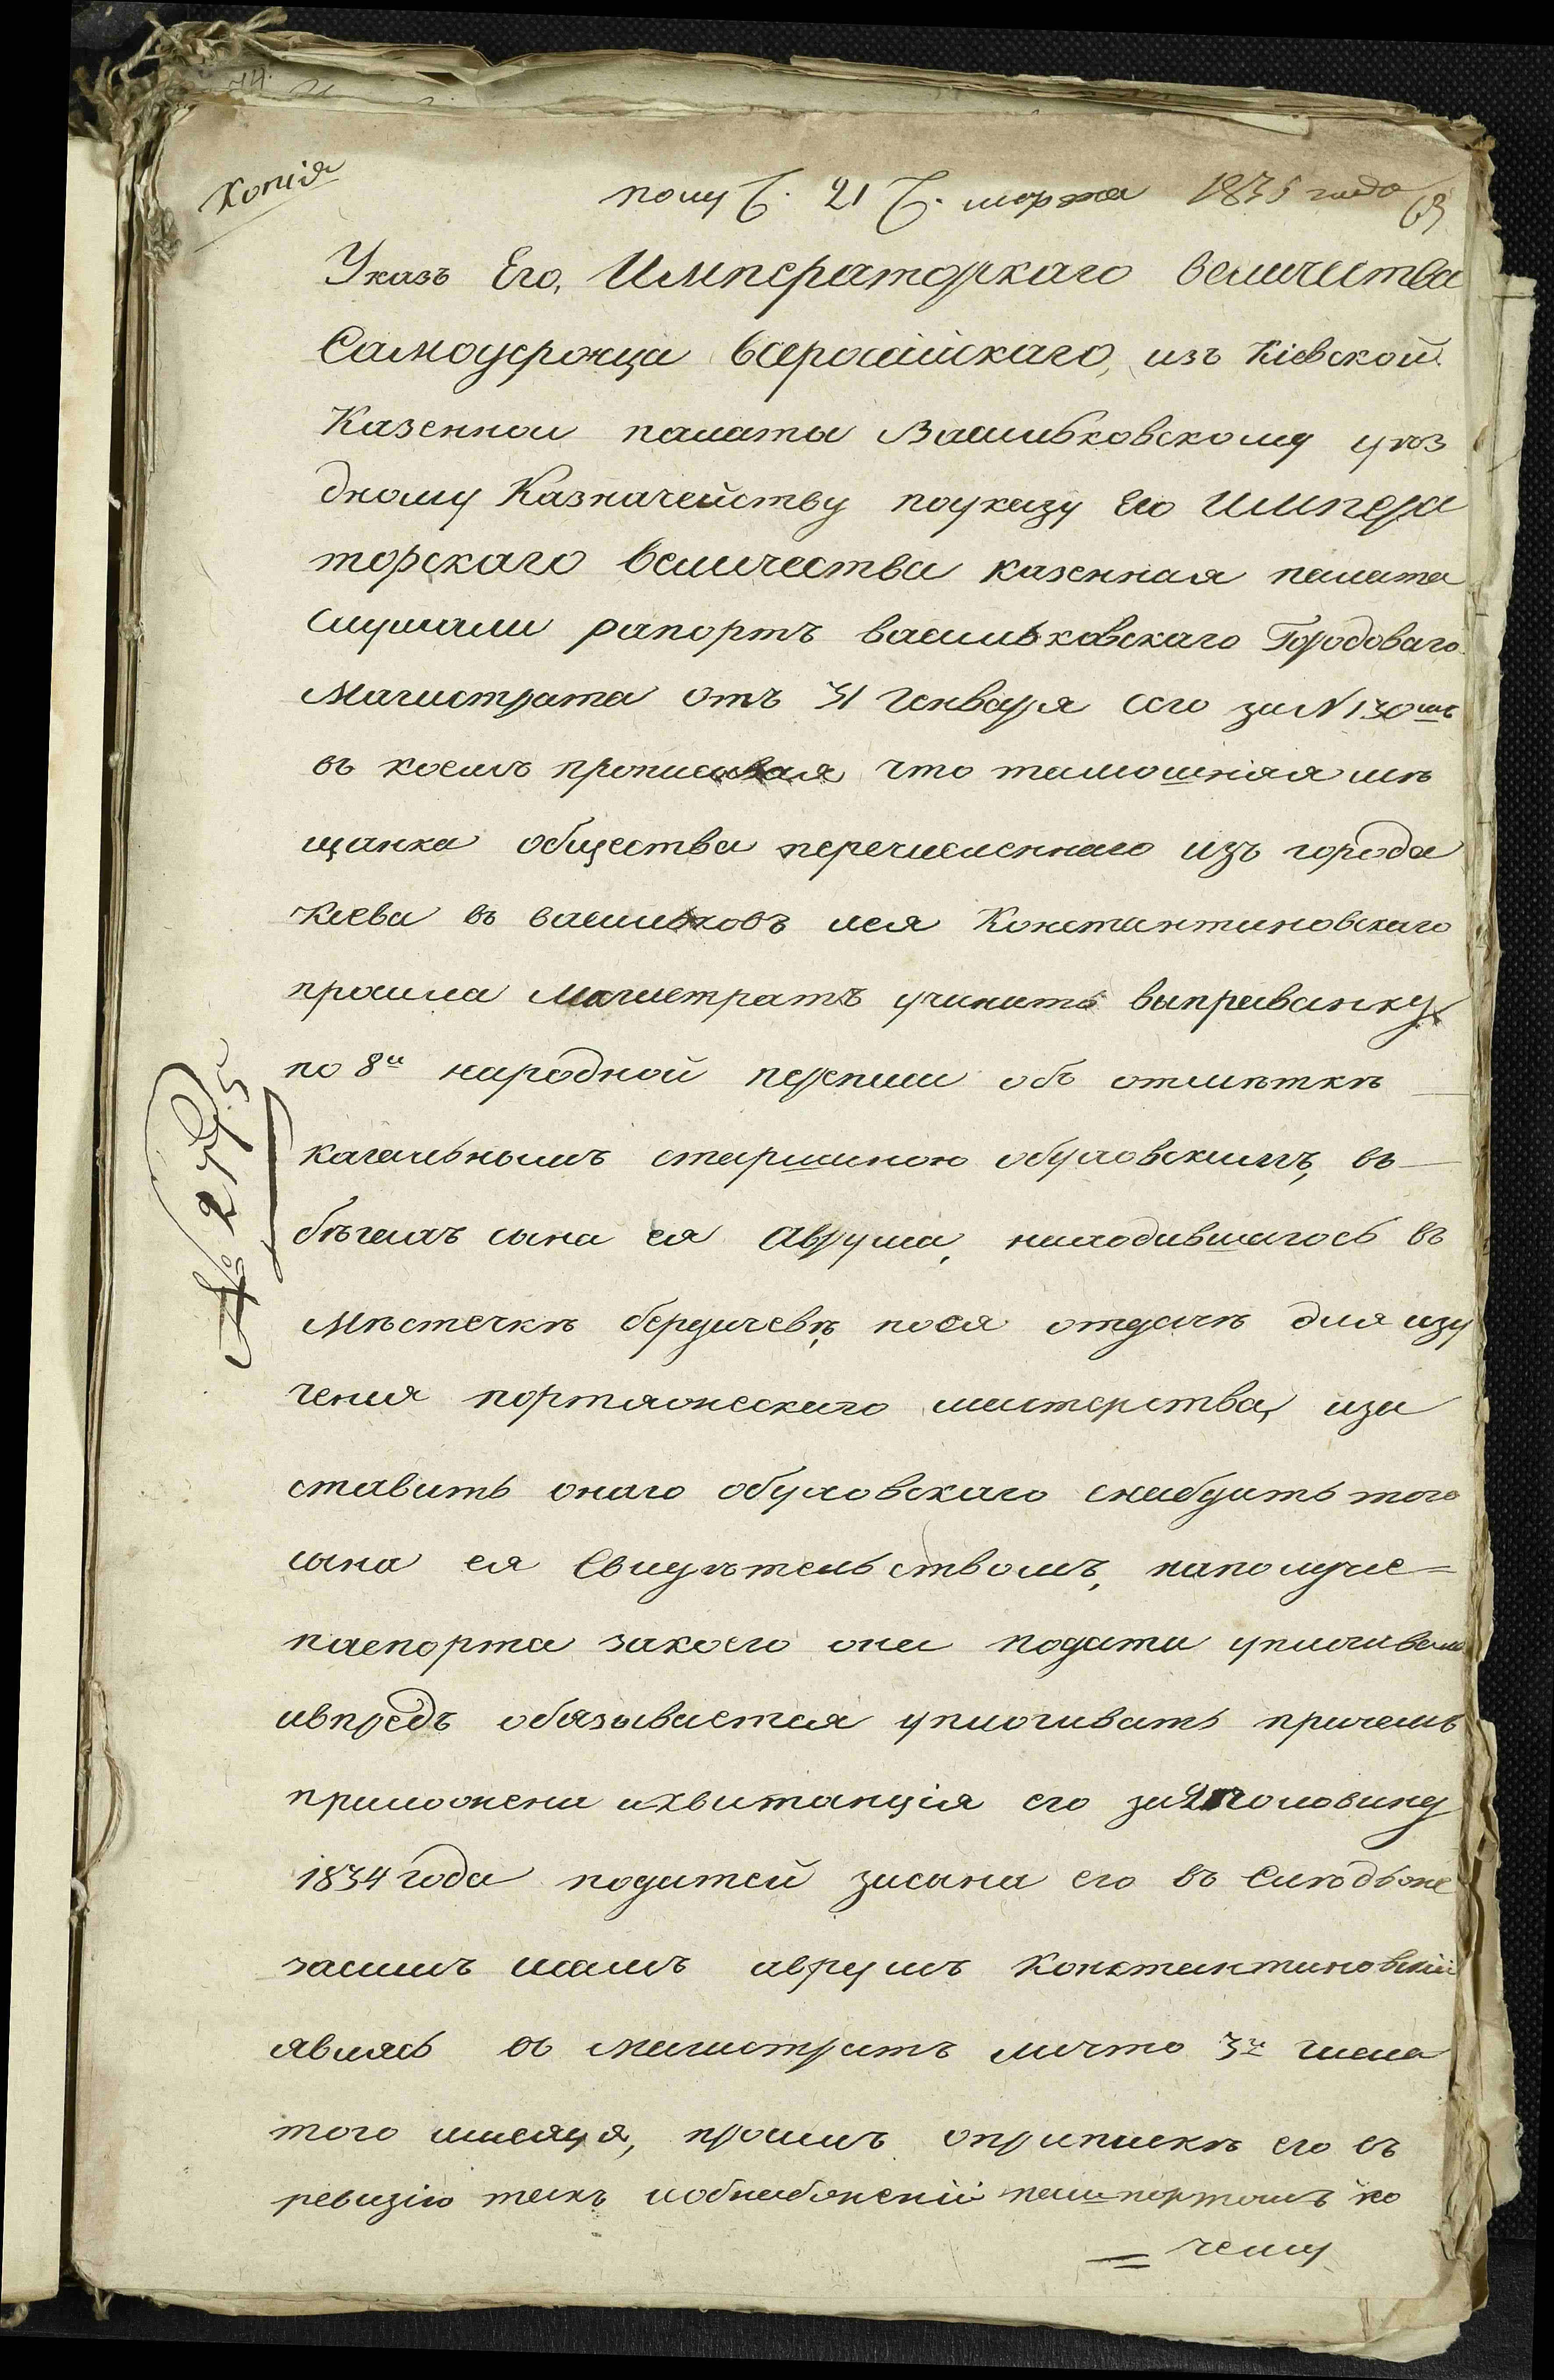 Копія
полу ч. 21 ч. марта 1835 года
63
Указъ Его, Императорскаго величества
Самодержца всеросіійскаго, изъ Кіевской
Казенной палаты Васильковскому уѣз
дному Казначейству поуказу Его Импера
торскаго величества казенная палата
слушали рапортъ васильковскаго Городоваго
Магистрата отъ 31 Генваря сего за N 130мъ
въ коемъ прописывая что тамошняя мѣ
щанка общества перечисленнаго изъ города
Киева въ васильковъ лея Константиновскаго
просила магистратъ учинить выправку
по 8й народной переписи объ отмѣткѣ
кагальнымъ старшиною обуховскимъ, въ
бѣгахъ сына ея Аврума, находившагось въ
Мѣстечкѣ бердичевѣ, поея отдачѣ для изу
чения портняжескаго мастерства, иза
ставить онаго обуховскаго снабдить того
сына ея Свидѣтельствомъ, наполуче=
паспорта закоего она подати уплачивала
ивпредь обязывается уплачивать причемъ
приложена иквитанція его за 2 половину
1834 года податей засына его въ Слѣдъже
засимъ самъ аврумъ Константиновскій
являсь въ магистратъ лично 3г числа
того мѣсяца, просилъ оприпискѣ его въ
ревизію такъ иобснабженіи пашпортомъ по
= чему